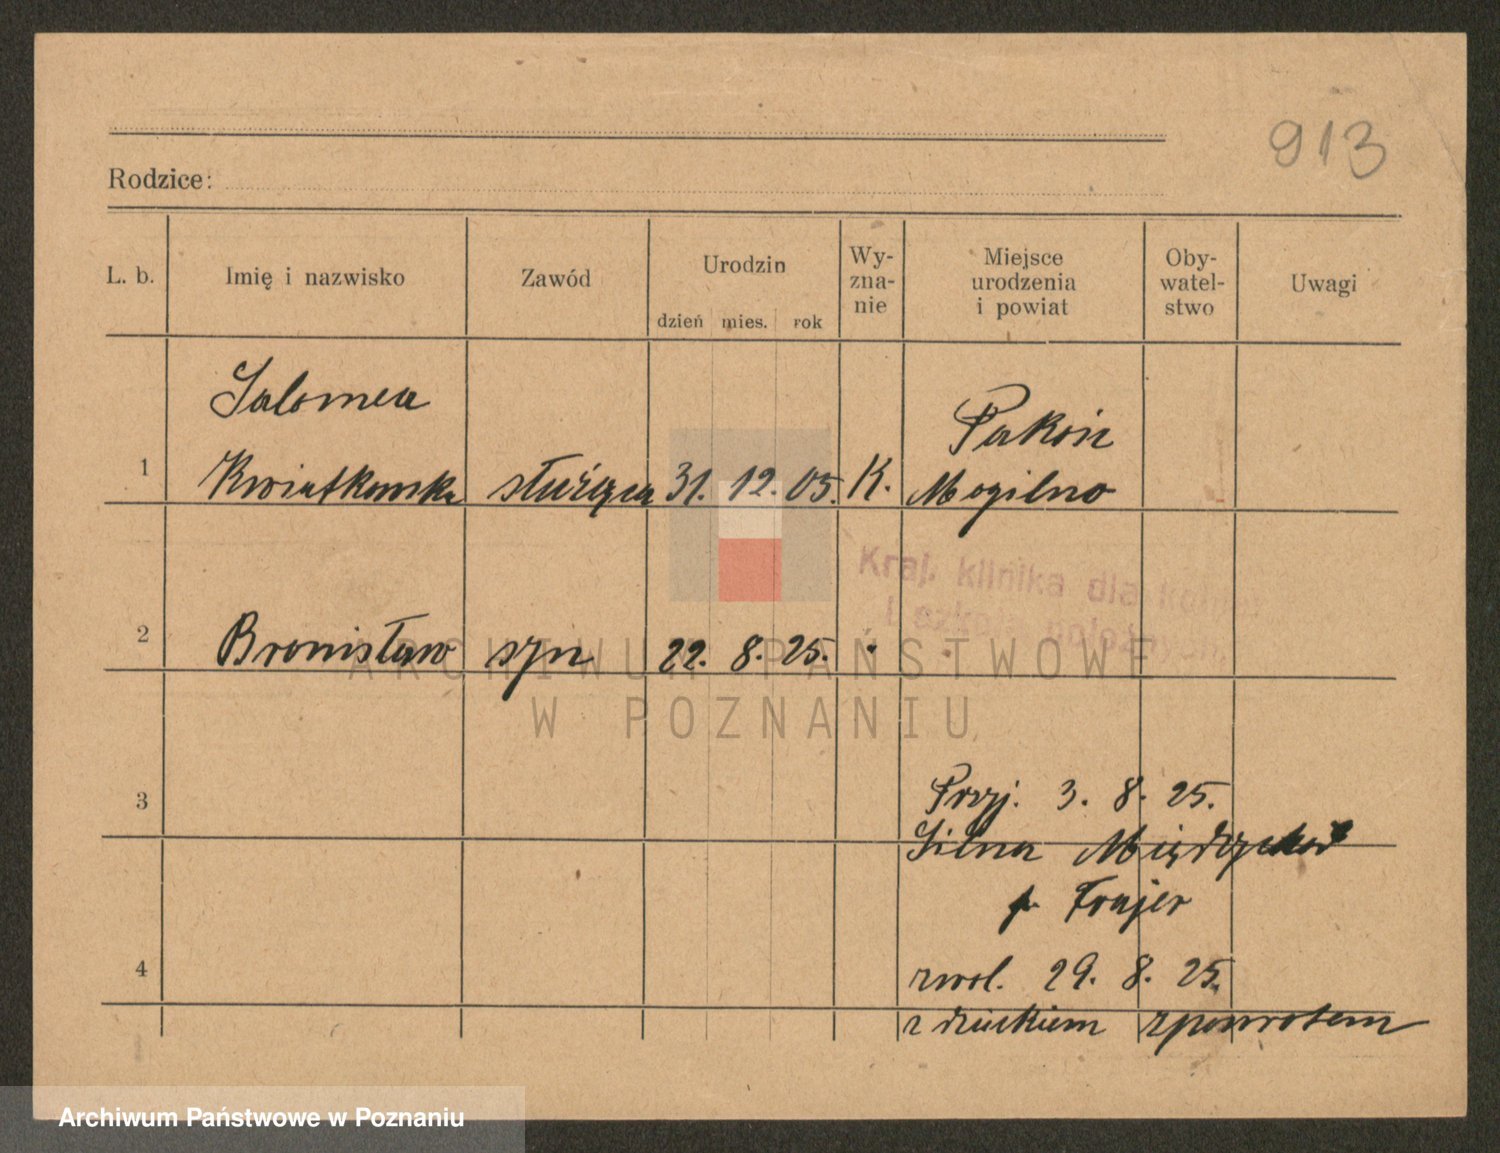 913
Rodzice:
L. b. Imię i nazwisko Zawód Urodzin Wy- Miejsce Oby- Uwagi
zna- urodzenia watel-
nie i powiat stwo
dzień mies. rok
Salomea
Pakość
1 Kwiatkowska służąca 31. 12. 05. K. Mogilno
Kraj. klinika dla kobiet
i szkoła położnych
2 Bronisław syn 22. 8. 25.
ARCHIWUM PAŃSTWOWE
W POZNANIU
3 Przyj. 3. 8. 25.
Silna Międzychód
p. Frajer
4 zwol. 29. 8. 25.
z dzieckiem zpowrotem
Archiwum Państwowe w Poznaniu